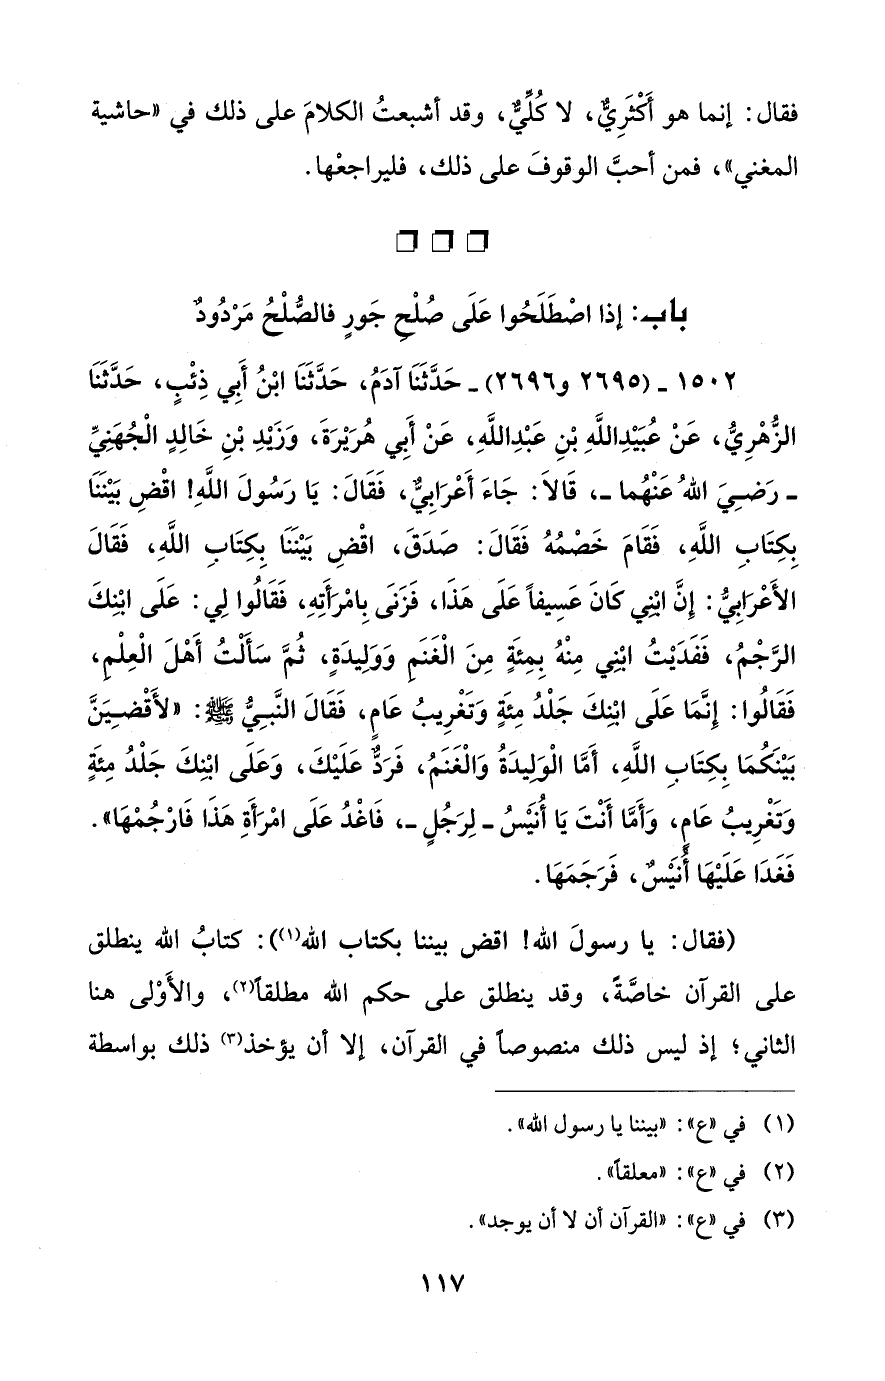 فقال: إنما هو أَكْثَرِيٌّ، لا كُلِّيٌّ، وقد أشبعتُ الكلامَ على ذلك في «حاشية
المغني»، فمن أحبَّ الوقوفَ على ذلك، فليراجعْها.
باب: إذا اصْطَلَحُوا عَلَى صُلْحِ جَورٍ فالصُّلْحُ مَرْدُودٌ
١٥٠٢ ـ (٢٦٩٥ و٢٦٩٦) ـ حَدَّثَنَا آدَمُ، حَدَّثَنَا ابْنُ أَبِي ذِئْبٍ، حَدَّثَنَا
الزُّهْرِيُّ، عَنْ عُبَيْدِاللَّهِ بْنِ عَبْدِاللَّهِ، عَنْ أَبِي هُرَيْرَةَ، وَزَيْدِ بْنِ خَالِدٍ الْجُهَنِيِّ
ـ رَضِيَ اللهُ عَنْهُما ـ، قَالاَ: جَاءَ أَعْرَابِيٌّ، فَقَالَ: يَا رَسُولَ اللَّهِ! اقْضِ بَيْنَنَا
بِكِتَابِ اللَّهِ، فَقَامَ خَصْمُهُ فَقَالَ: صَدَقَ، اقْضِ بَيْنَنَا بِكِتَابِ اللَّهِ، فَقَالَ
الأَعْرَابِيُّ: إِنَّ ابْنِي كَانَ عَسِيفاً عَلَى هَذَا، فَزَنَى بِامْرَأَتِهِ، فَقَالُوا لِي: عَلَى ابْنِكَ
الرَّجْمُ، فَفَدَيْتُ ابْنِي مِنْهُ بِمِئَةٍ مِنَ الْغَنَمِ وَوَلِيدَةٍ، ثُمَّ سَأَلْتُ أَهْلَ الْعِلْمِ،
فَقَالُوا: إِنَّمَا عَلَى ابْنِكَ جَلْدُ مِئَةٍ وَتَغْرِيبُ عَامٍ، فَقَالَ النَّبِيُّ ﷺ: «لأَقْضِيَنَّ
بَيْنَكُمَا بِكِتَابِ اللَّهِ، أَمَّا الْوَلِيدَةُ وَالْغَنَمُ، فَرَدٌّ عَلَيْكَ، وَعَلَى ابْنِكَ جَلْدُ مِئَةٍ
وَتَغْرِيبُ عَامٍ، وَأَمَّا أَنْتَ يَا أُنَيْسُ ـ لِرَجُلٍ ـ، فَاغْدُ عَلَى امْرَأَةِ هَذَا فَارْجُمْهَا».
فَغَدَا عَلَيْهَا أُنَيْسٌ، فَرَجَمَهَا.
(فقال: يا رسولَ الله! اقض بيننا بكتاب الله(١)): كتابُ الله ينطلق
على القرآن خاصَّةً، وقد ينطلق على حكم الله مطلقاً(٢)، والأَوْلى هنا
الثاني؛ إذ ليس ذلك منصوصاً في القرآن، إلا أن يؤخذ(٣) ذلك بواسطة
(١) في «ع»: «بيننا يا رسول الله».
(٢) في «ع»: «معلقاً».
(٣) في «ع»: «القرآن أن لا أن يوجد».
١١٧